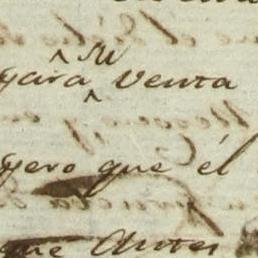 para su venta
pero que él
que antes